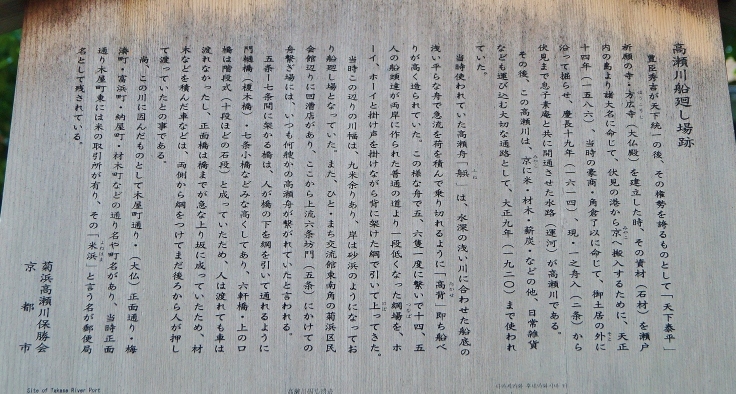 高瀬川船廻し場跡
豊臣秀吉が天下統一の後、その権勢を誇るものとして「天下泰平」
祈願の寺・方広寺(大仏殿)を建立した時、その資材(石材)を瀬戸
内の島より諸大名に命じて、伏見の港から京へ搬入するために、天正
十四年(一五八六)、当時の豪商・角倉了以に命じて、御土居の外に
沿って掘らせ、慶長十九年(一六一四)、現・一之舟入(二条)から
伏見まで息子素庵と共に開通させた水路(運河)が高瀬川である。
その後、この高瀬川は、京に米・材木・薪炭・などの他、日常雑貨
なども運び込む大切な通路として、大正九年(一九二〇)まで使われ
ていた。
当時使われていた高瀬舟「 」は、水深の浅い川に合わせた船底の
浅い平らな舟で急流を荷を積んで乗り切れるように「高背」即ち船べ
りが高く造られていた。この様な舟で五、六隻一度に繋いで十四、五
人の船頭達が両岸に作られた普通の道より一段低くなった綱場を、ホ
ーイ、ホーイと掛け声を掛けながら背に架けた綱で引いて上ってきた。
当時この辺りの川幅は、九米余りあり、岸は砂浜のようになってお
り船廻し場となっていた。また、ひと・まち交流館東南角の菊浜区民
会館辺りに回漕店があり、ここから上流六条坊門(五条)にかけての
舟繋ぎ場には、いつも何艘かの高瀬舟が繋がれていたと言われる。
五条―七条間に架かる橋は、人が橋の下を綱を引いて通れるように
門樋橋(榎木橋)・七条小橋などみな高くしてあり、六軒橋・上の口
橋は階段式(十段ほどの石段)と成っていたため、人は渡れても車は
渡れなかったし、正面橋は橋までが急な上り坂に成っていたため、材
木などを積んだ車などは、両側から綱をつけてまだ後ろから人が押し
て渡っていたとの事である。
尚、この川に因んだものとして木屋町通り・(大仏)正面通り・梅
湊町・富浜町・納屋町・材木町などの通り名や町名があり、当時正面
通り木屋町東には米の取引所が有り、その「米浜」と言う名が郵便局
名として残されている。
菊浜高瀬川保勝会
京都市
Site of Takase River Port